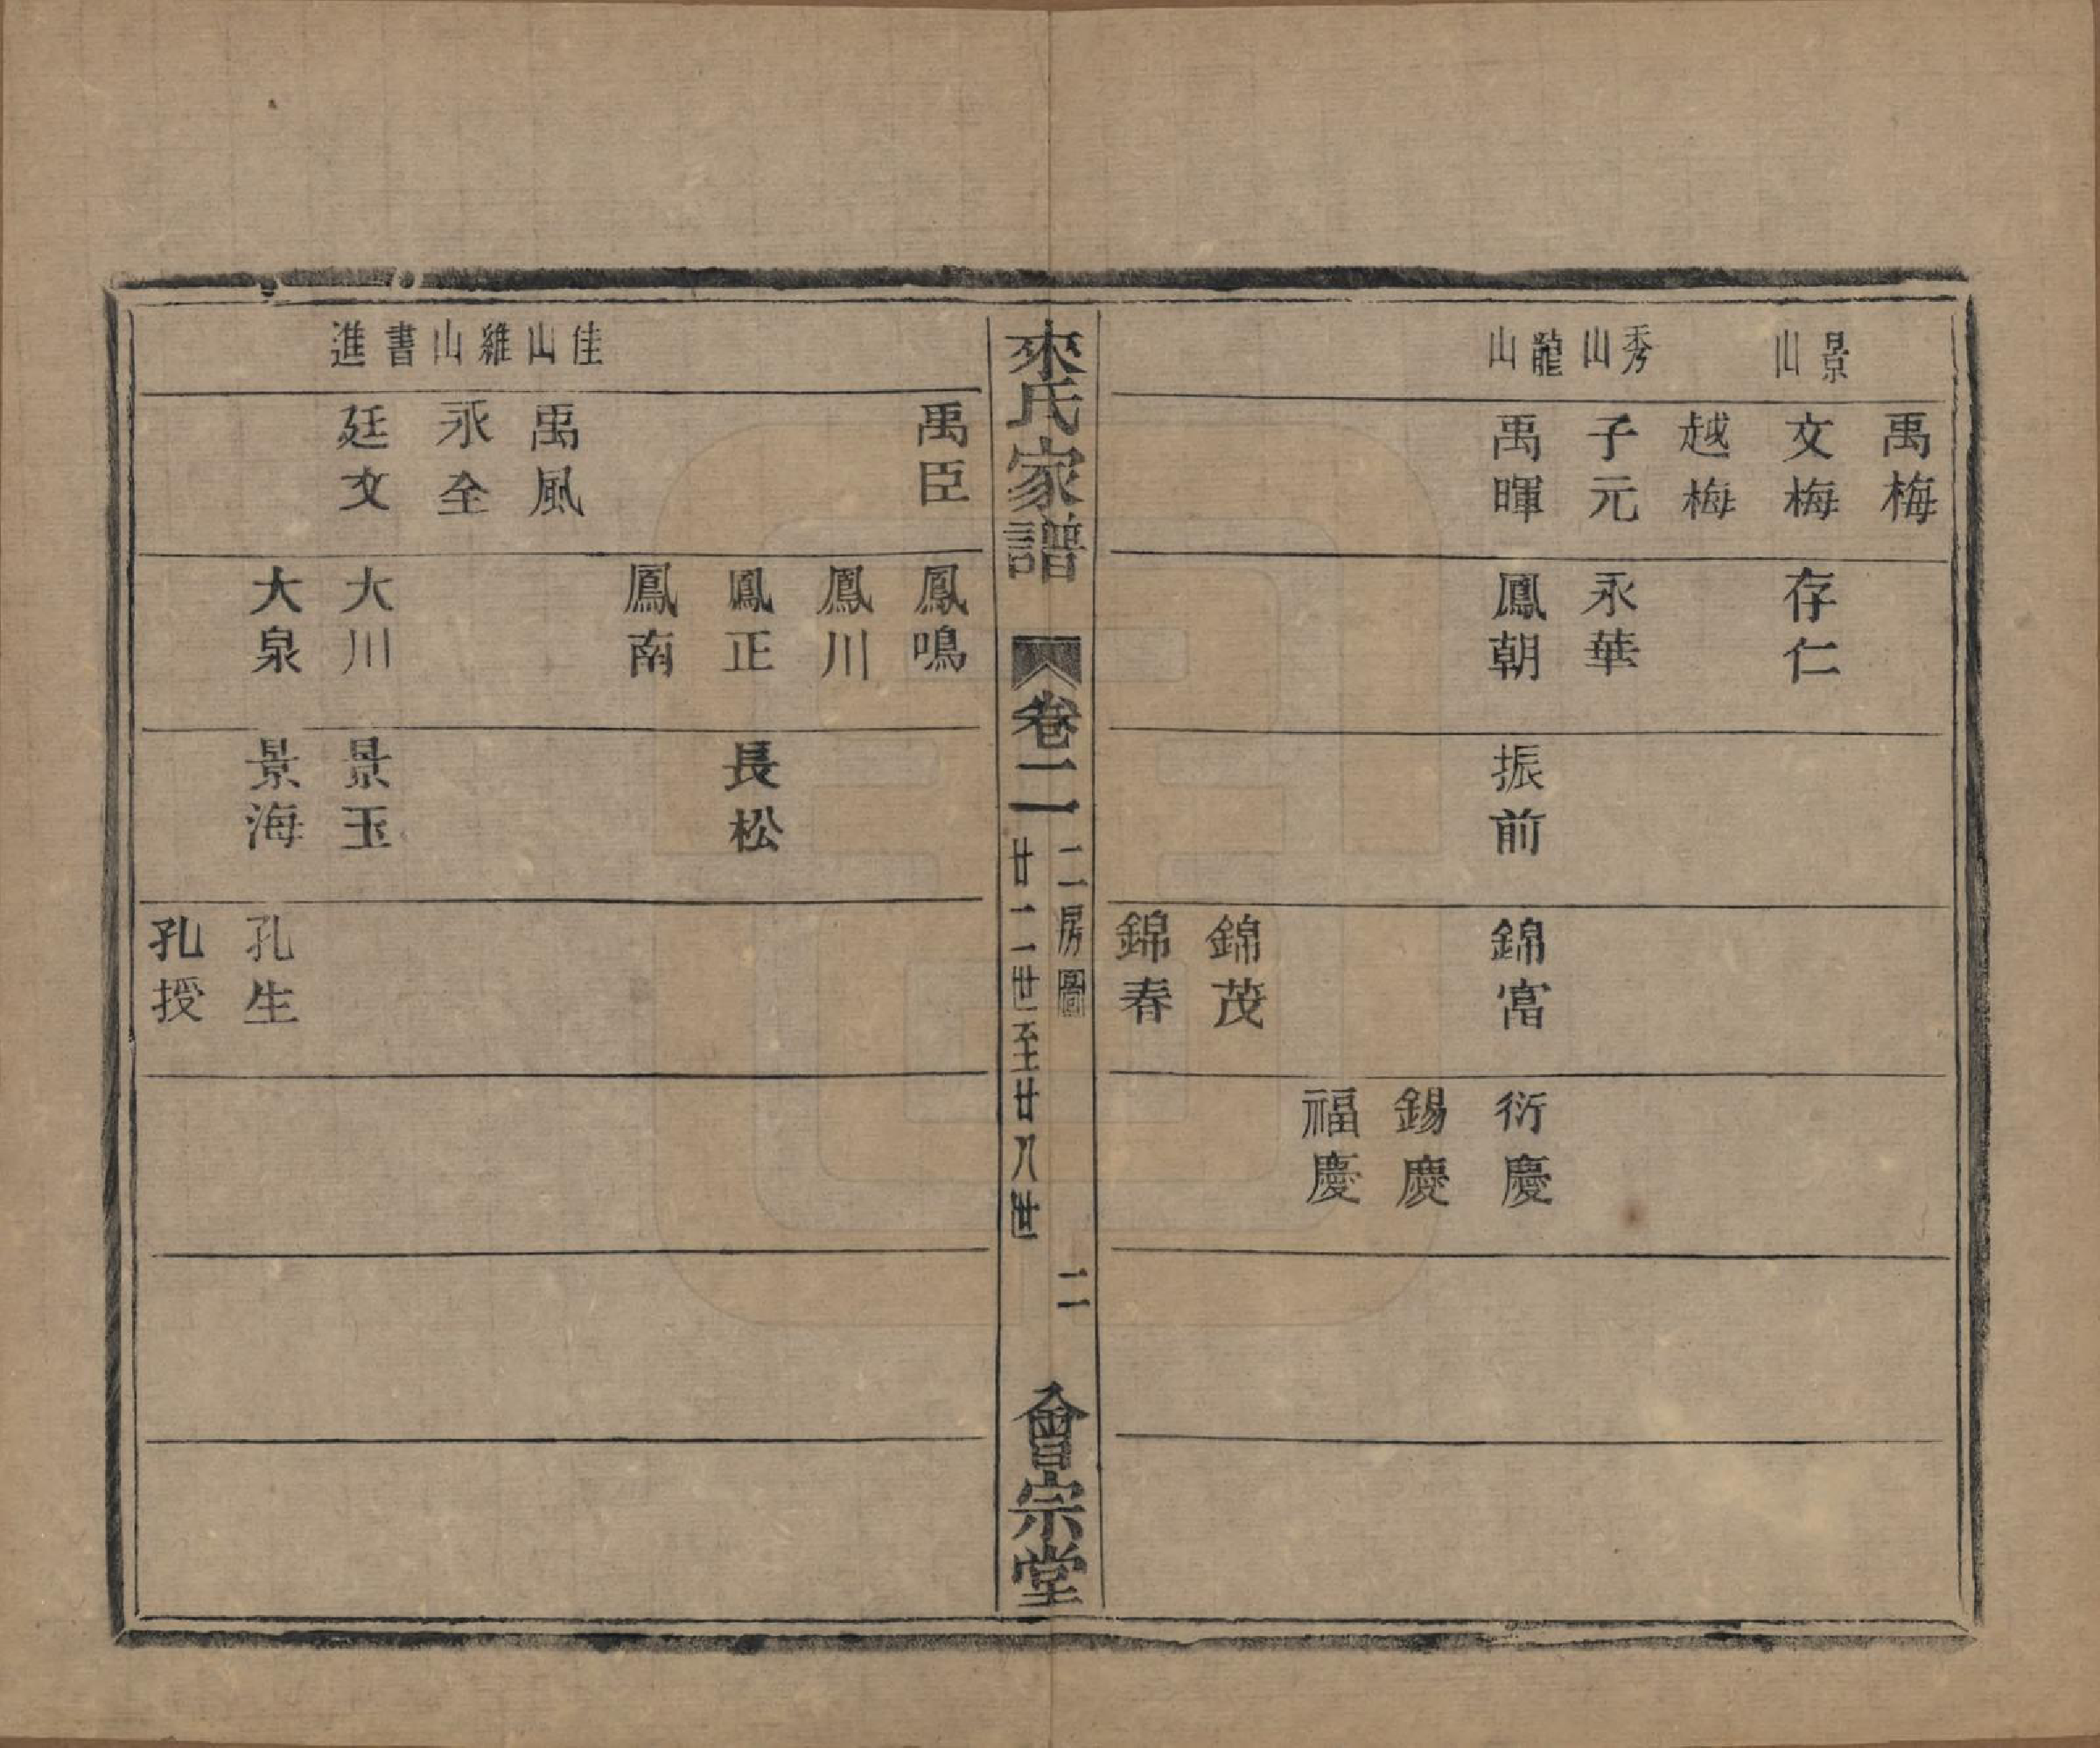 景山
秀山
龍山
禹梅
文梅
越梅
子元
禹暉
存仁
永華
鳳朝
振前
錦富
錦茂
錦春
衍慶
錫慶
福慶
來氏家譜
卷二
二房圖
廿二世至廿八世
二
會宗堂
佳山
維山
書進
禹臣
禹風
永全
廷文
鳳鳴
鳳川
鳳正
鳳南
大川
大泉
長松
景玉
景海
孔生
孔授